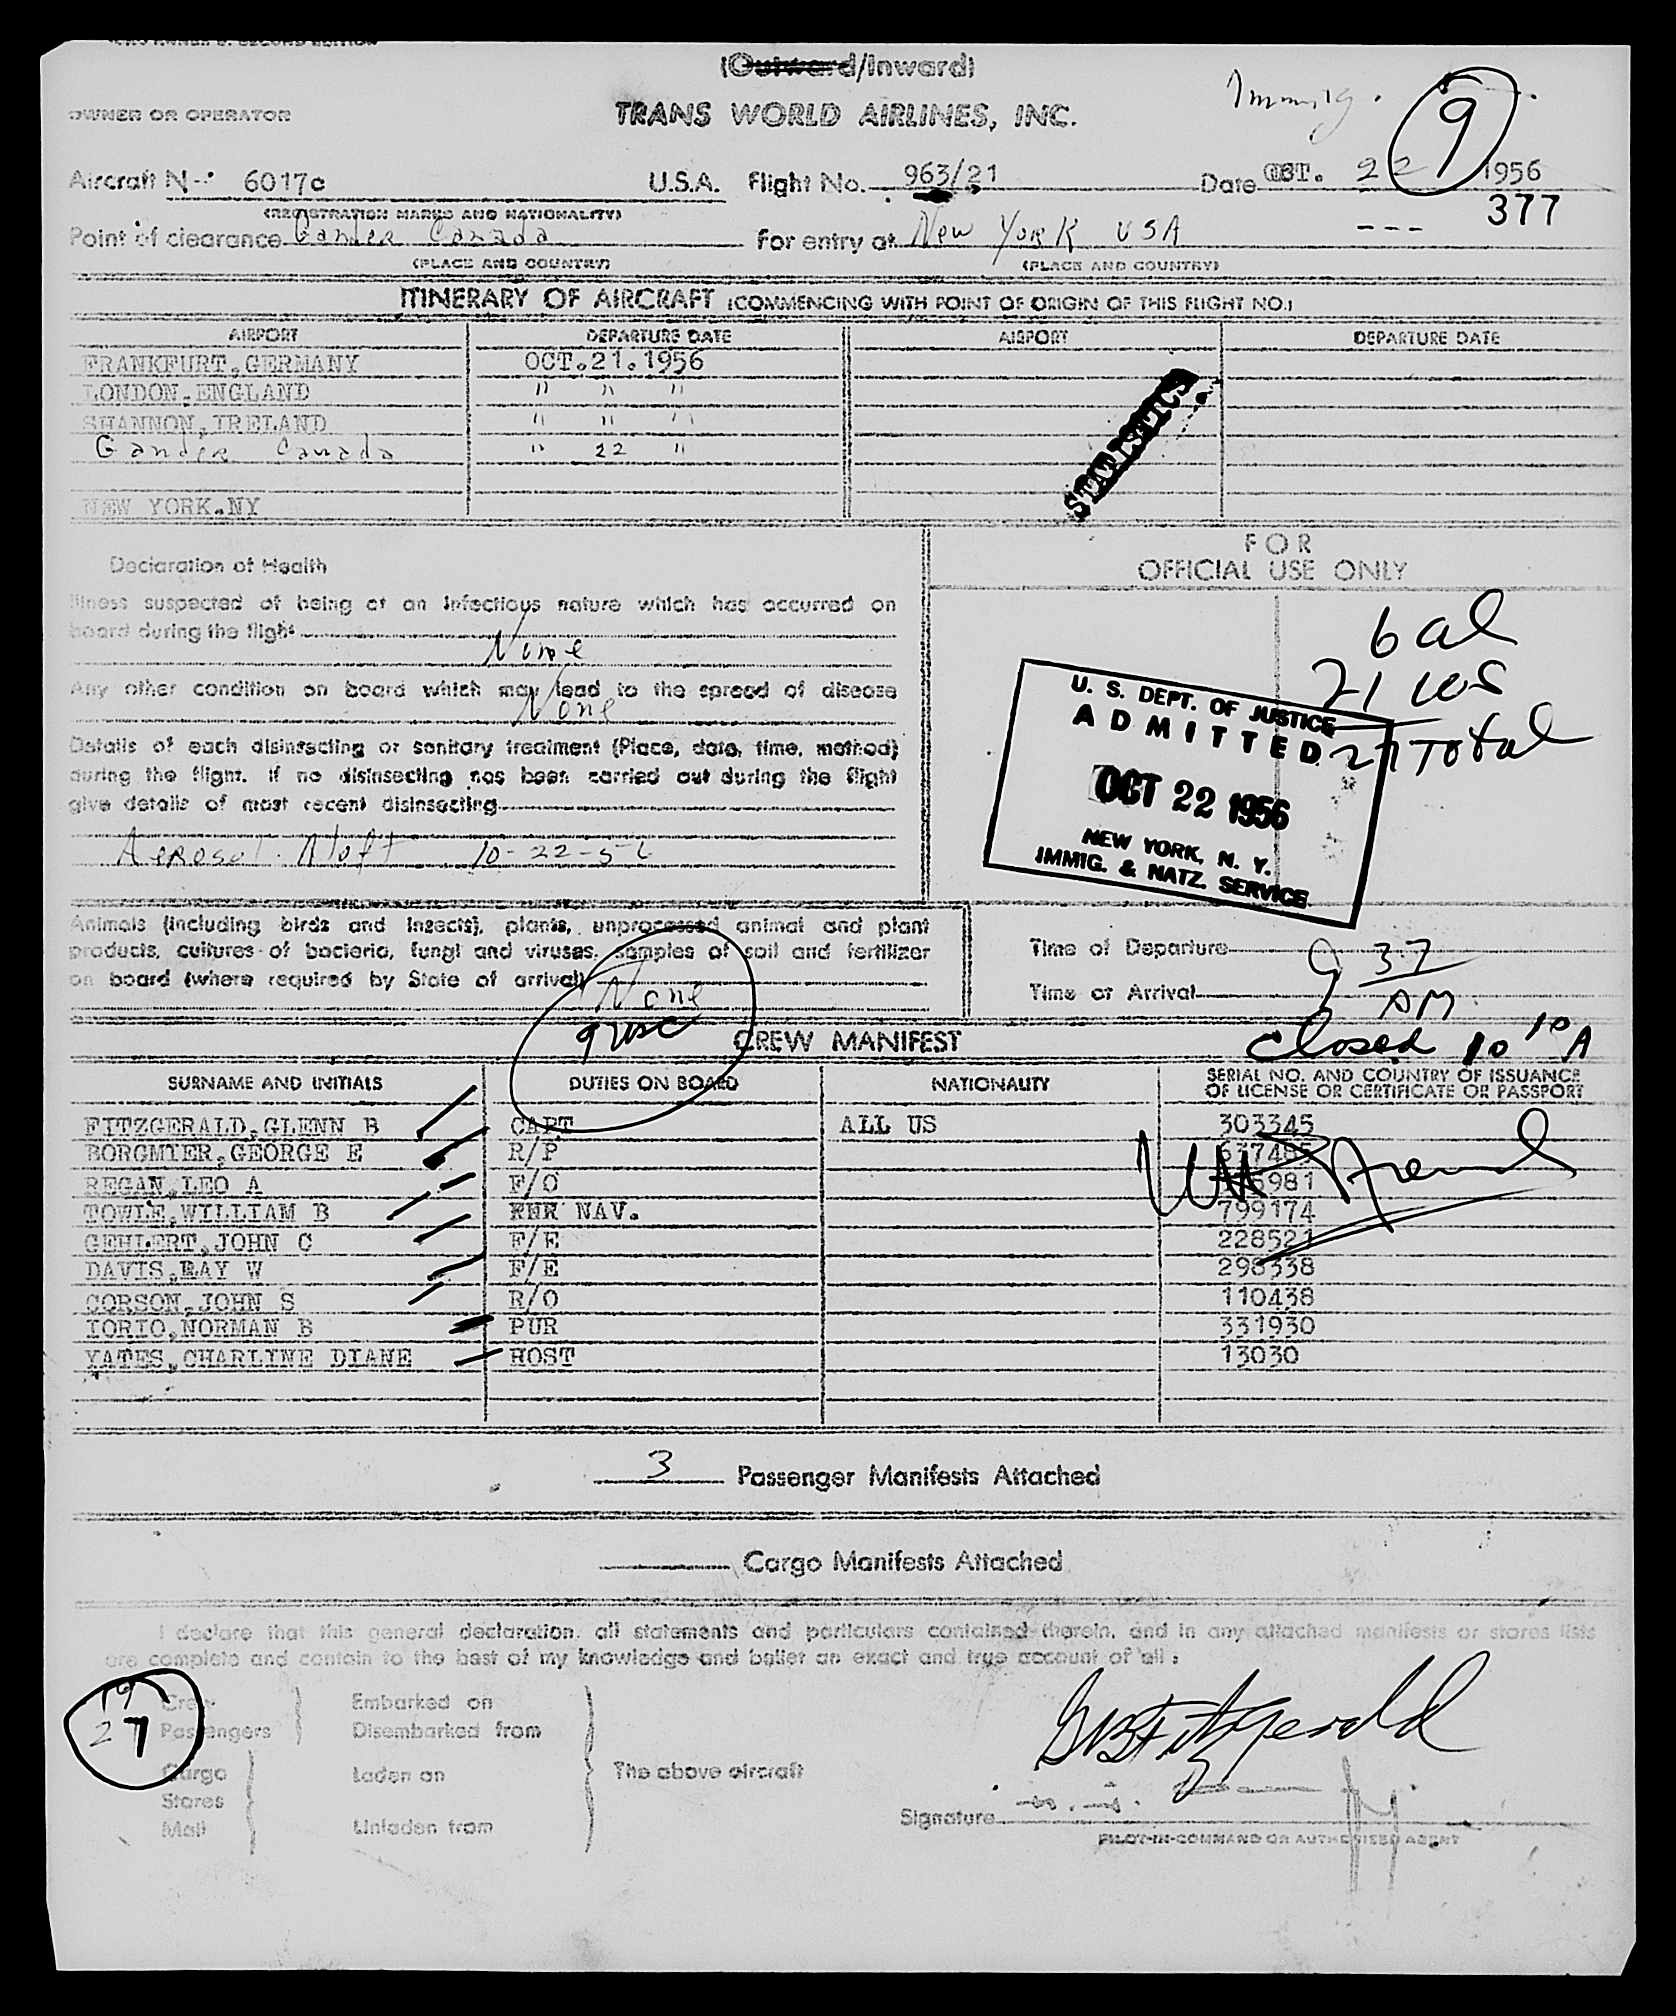 (Outward/Inward)
OWNER OR OPERATOR
TRANS WORLD AIRLINES, INC.
Immig.
9
Aircraft N-- 6017c U.S.A. Flight No. 963/21 Date OCT. 22 1956
(REGISTRATION MARKS AND NATIONALITY)
377
Point of clearance Gander Canada For entry at New York USA ---
(PLACE AND COUNTRY) (PLACE AND COUNTRY)
ITINERARY OF AIRCRAFT (COMMENCING WITH POINT OF ORIGIN OF THIS FLIGHT NO.)
AIRPORT DEPARTURE DATE AIRPORT DEPARTURE DATE
FRANKFURT, GERMANY OCT.21.1956
LONDON.ENGLAND " " "
SHANNON, IRELAND " " "
Gander Canada " 22 "
NEW YORK.NY
STATISTICS
Declaration of Health
FOR
OFFICIAL USE ONLY
Illness suspected of being of an infectious nature which has occurred on
board during the flight
None
Any other condition on board which may lead to the spread of disease
None
Details of each disinsecting or sanitary treatment (Place, date, time, method)
during the flight. If no disinsecting has been carried out during the flight
give details of most recent disinsecting
Aerosol. 10-22-56
6 al
21 
27 Total
U. S. DEPT. OF JUSTICE
ADMITTED
OCT 22 1956
NEW YORK, N. Y.
IMMIG. & NATZ. SERVICE
Animals (including birds and insects), plants, unprocessed animal and plant
products, cultures of bacteria, fungi and viruses, samples of soil and fertilizer
on board (where required by State of arrival)
None
9 usc
Time of Departure
Time of Arrival 9 37 AM
Closed 10 10 A
CREW MANIFEST
SURNAME AND INITIALS DUTIES ON BOARD NATIONALITY SERIAL NO. AND COUNTRY OF ISSUANCE
OF LICENSE OR CERTIFICATE OR PASSPORT
FITZGERALD, GLENN B CAPT ALL US 303345
BORGMIER, GEORGE E R/P
REGAN, LEO A F/O
TOWLE, WILLIAM B NAV. 799174
GEHLERT, JOHN C F/E 228521
DAVIS, RAY W F/E 298338
CORSON, JOHN S R/O 110438
IORIO, NORMAN B PUR 331930
YATES, CHARLINE DIANE HOST 13030
3 Passenger Manifests Attached
Cargo Manifests Attached
I declare that this general declaration, all statements and particulars contained therein, and in any attached manifests or stores lists
are complete and contain to the best of my knowledge and belief an exact and true account of all:
27
Crew Embarked on
Passengers Disembarked from
Cargo Laden on The above aircraft
Stores
Mail Unladen from
GB Fitzgerald
Signature
PILOT-IN-COMMAND OR AUTHORISED AGENT